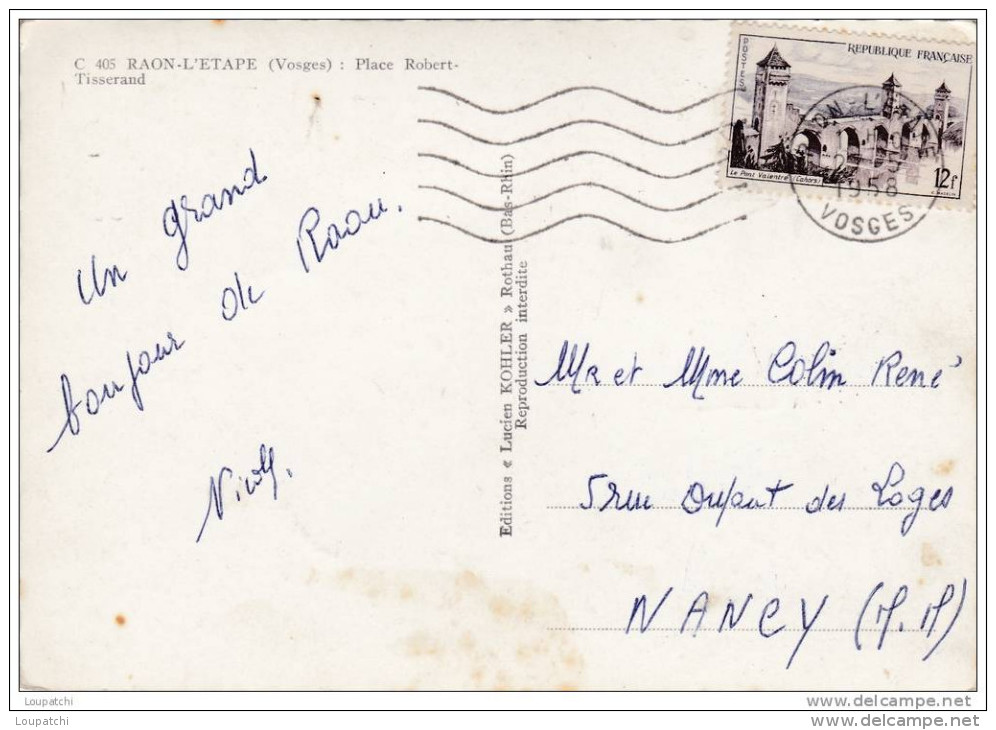 C 405 RAON-L'ETAPE (Vosges) : Place Robert-
Tisserand
Un grand
bonjour de Raon.
Editions « Lucien KOHLER » Rothau (Bas-Rhin)
Reproduction interdite
POSTES
REPUBLIQUE FRANÇAISE
Le Pont Valentré (Cahors)
12f
1958
VOSGES
Mr et Mme Colin René
5 rue Dupont des Loges
NANCY (M.M)
Loupatchi
www.delcampe.net
Loupatchi
www.delcampe.net